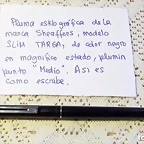 Pluma estilográfica de la
marca Sheaffers, modelo
SLIM TARGA, de color negro
en magnífico estado, plumin
punto "Medio". Así es
como escribe.